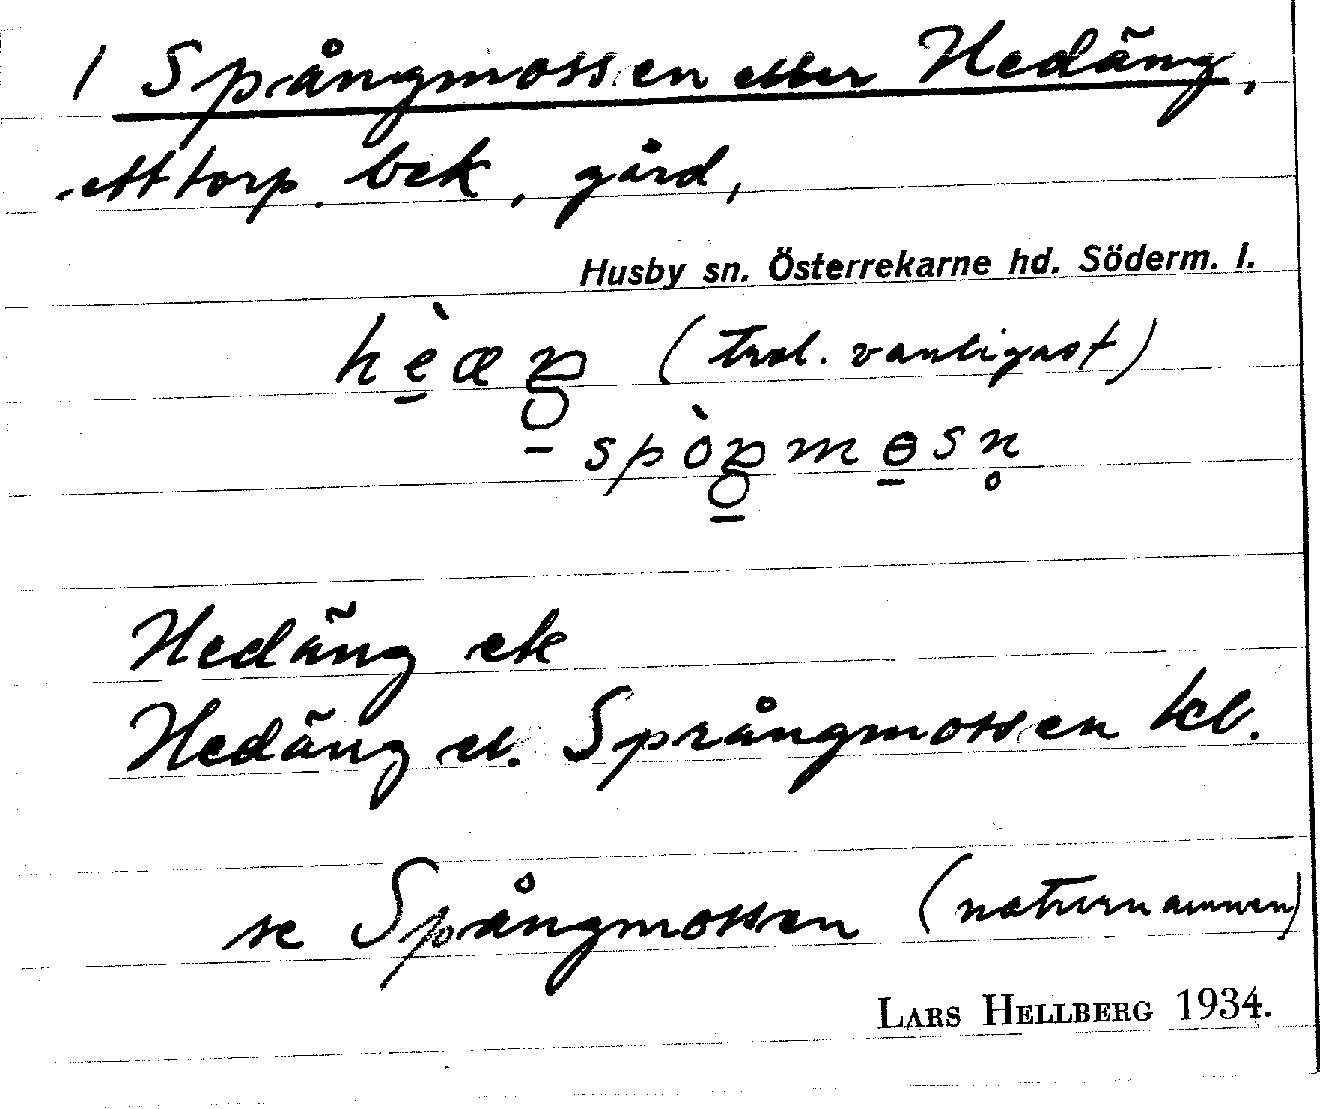 1 Spångmossen eller Hedäng,
ett torp. bek, gård,
Husby sn. Österrekarne hd. Söderm. l.
(trol. vanligast)
Hedäng ek
Hedäng el. Språngmossen kb.
se Spångmossen (naturnamnen)
LARS HELLBERG 1934.